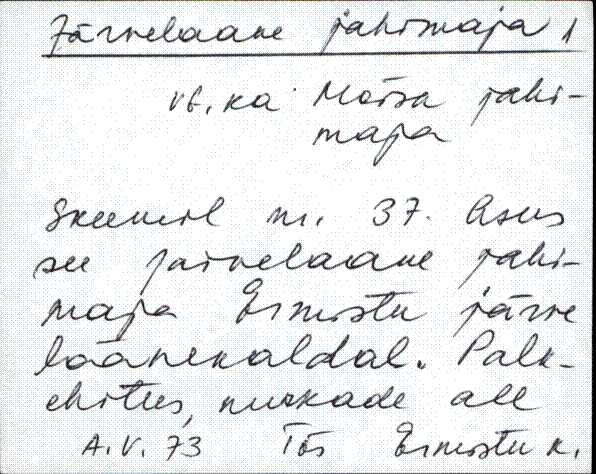 Järvelaane jahimaja 1
vt. ka Mõisa jahi-
maja
Skeemil nr. 37. Asus
see Järvelaane jahi-
maja Ermistu järve
läänekaldal. Palk-
ehitus, nurkade all
A.V. 73 Tõs Ermistu k.